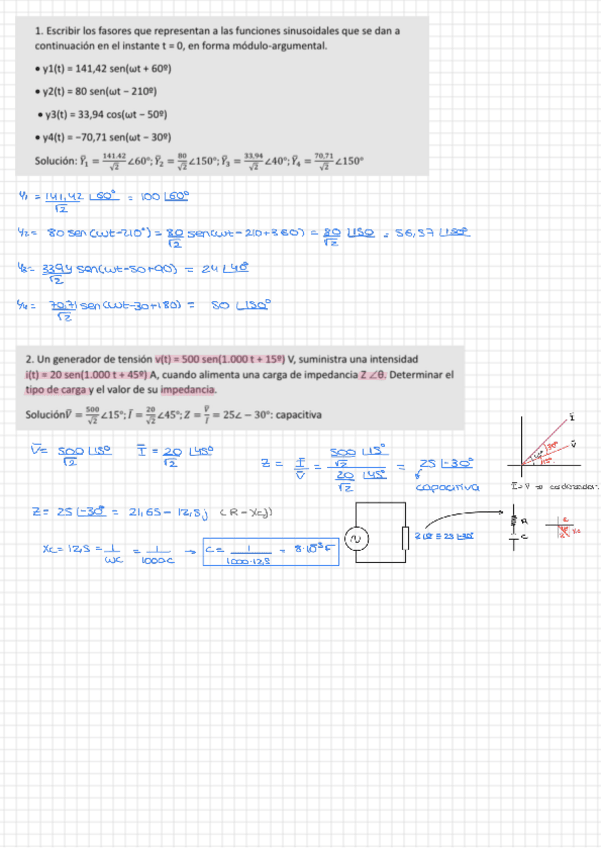 1. Escribir los fasores que representan a las funciones sinusoidales que se dan a
continuación en el instante t = 0, en forma módulo-argumental.
• y1(t) = 141,42 sen(ωt + 60º)
• y2(t) = 80 sen(ωt − 210º)
• y3(t) = 33,94 cos(ωt − 50º)
• y4(t) = −70,71 sen(ωt − 30º)
Solución: Ȳ₁ = 141.42/√2 ∠60°; Ȳ₂ = 80/√2 ∠150°; Ȳ₃ = 33,94/√2 ∠40°; Ȳ₄ = 70,71/√2 ∠150°
Y₁ = 141,42/√2 ∠60° = 100 ∠60°
Y₂ = 80 sen(ωt-210°) = 80/√2 sen(ωt-210+360) = 80/√2 ∠150 = 56,57 ∠150°
33,94/√2 sen(ωt-50+90) = 24 ∠40°
Y₄ = 70,71/√2 sen(ωt-30+180) = 50 ∠150°
2. Un generador de tensión v(t) = 500 sen(1.000 t + 15º) V, suministra una intensidad
i(t) = 20 sen(1.000 t + 45º) A, cuando alimenta una carga de impedancia Z ∠θ. Determinar el
tipo de carga y el valor de su impedancia.
SoluciónV̄ = 500/√2 ∠15°; Ī = 20/√2 ∠45°; Z = V̄/Ī = 25∠ − 30°: capacitiva
V̄ = 500/√2 ∠15° Ī = 20/√2 ∠45°
Z = Ī/V̄ = (500/√2 ∠15°)/(20/√2 ∠45°) = 25 ∠-30°
capacitiva
I
V
Z = 25 ∠-30° = 21,65 - 12,5j (R - Xcj)
R
C
Xc = 12,5 = 1/ωC = 1/1000C → C = 1/1000·12,5 = 8·10⁻⁵F